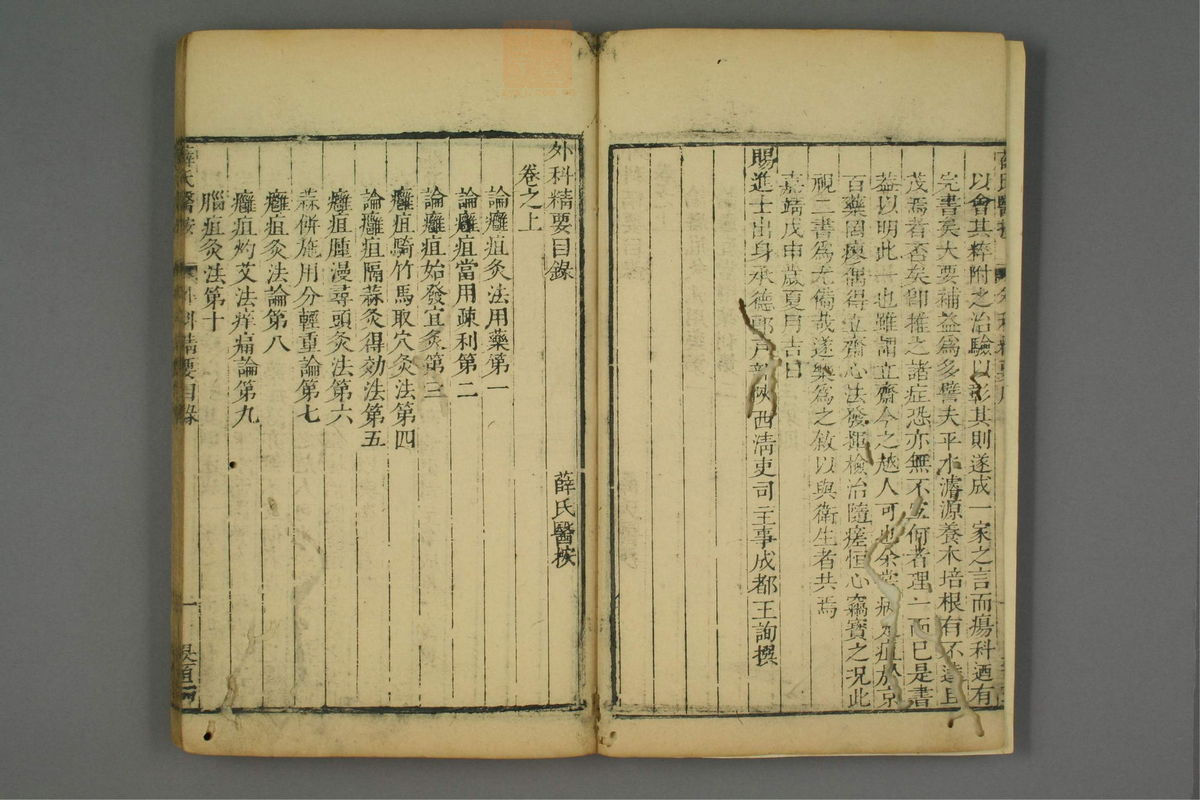 以會其粹附之治驗以彰其則遂成一家之言而瘍科迺有
完書矣大要補益爲多譬夫平水濬源養木培根有不達且
茂焉者否矣卽推之諸症恐亦無不宜何者理一而已是書
益以明此也雖謂立齋今之越人可也余嘗病疽於京
百藥罔瘳偶得立齋心法發揮檢治隨瘥恒心竊寶之況此
視二書爲尤備哉遂樂爲之敘以與衛生者共焉
嘉靖戊申歲夏月吉日
賜進士出身承德郎戶部陝西清吏司主事成都王詢撰
外科精要目錄 薛氏醫按
卷之上
論癰疽灸法用藥第一
論癰疽當用疎利第二
論癰疽始發宜灸第三
癰疽騎竹馬取穴灸法第四
論癰疽隔蒜灸得効法第五
癰疽腫漫尋頭灸法第六
蒜併施用分輕重論第七
癰疽灸法論第八
癰疽灼艾法痒痛論第九
腦疽灸法第十
薛氏醫按 外科精要目錄 一